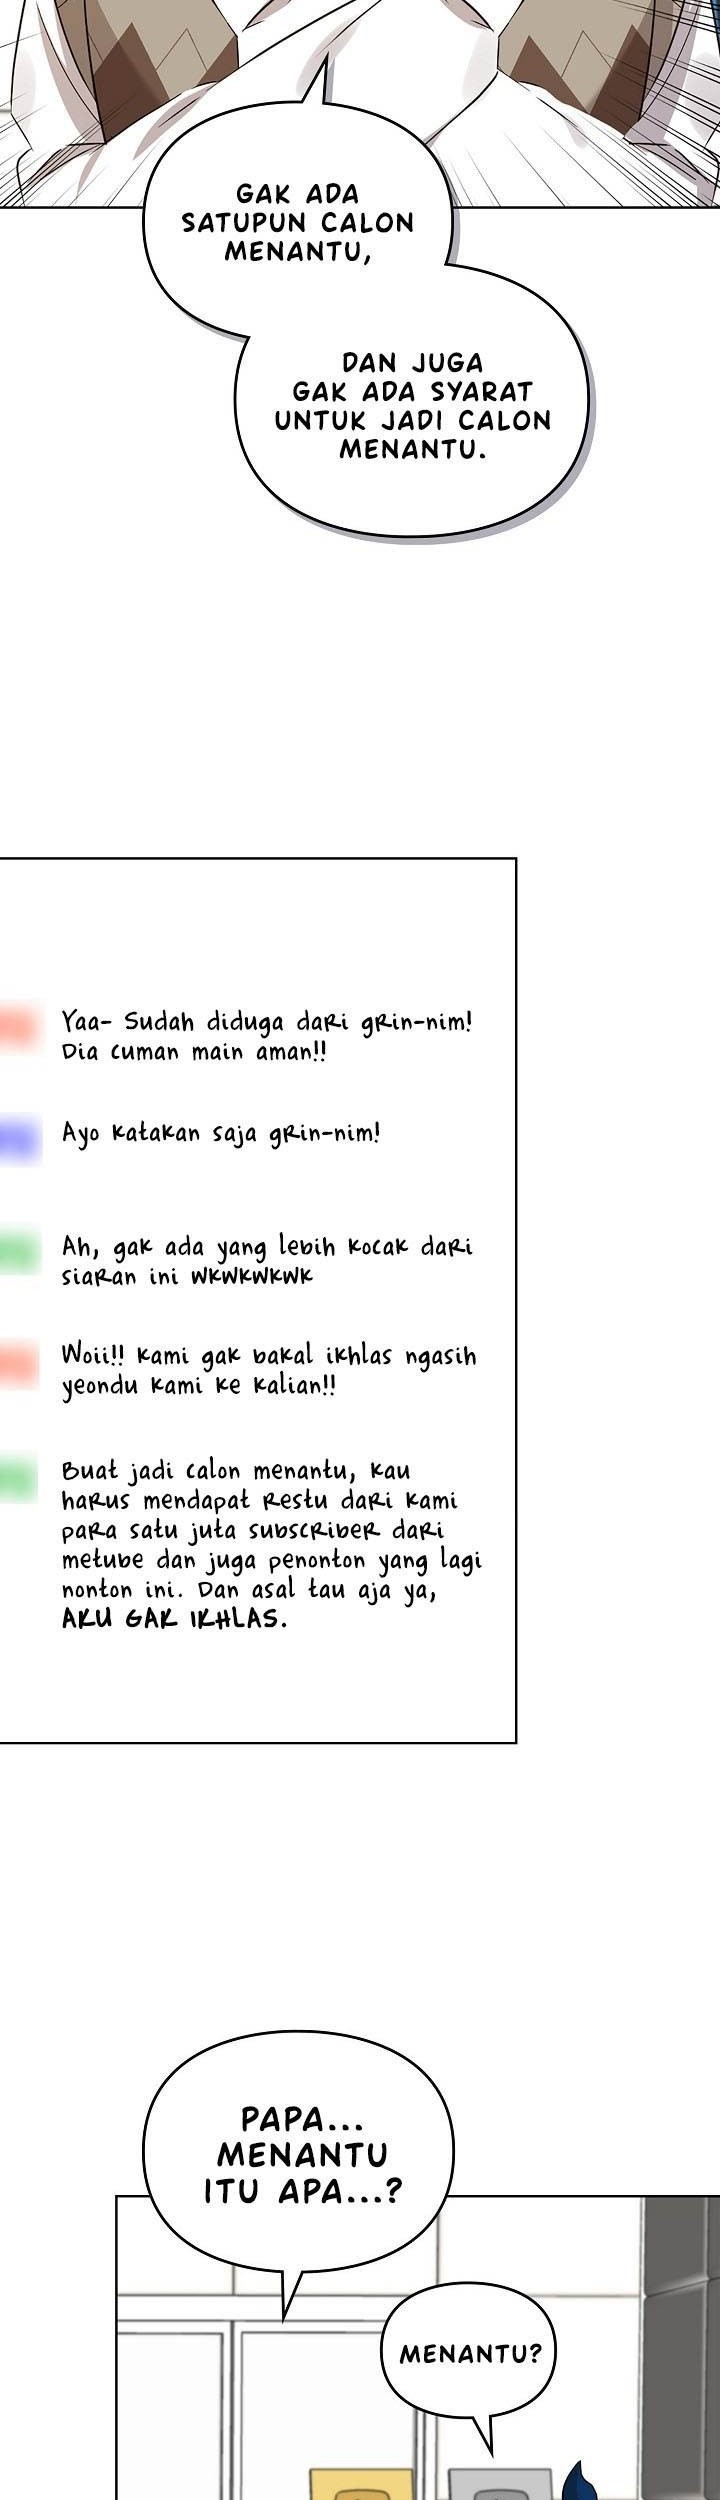 GAK ADA
SATUPUN CALON
MENANTU,
DAN JUGA
GAK ADA SYARAT
UNTUK JADI CALON
MENANTU.
Yaa- Sudah diduga dari grin-nim!
Dia cuman main aman!!
Ayo katakan saja grin-nim!
Ah, gak ada yang lebih kocak dari
siaran ini WKWKWKWK
Woii!! kami gak bakal ikhlas ngasih
yeondu kami ke kalian!!
Buat jadi calon menantu, kau
harus mendapat restu dari kami
para satu juta subscriber dari
metube dan juga penonton yang lagi
nonton ini. Dan asal tau aja ya,
AKU GAK IKHLAS.
PAPA...
MENANTU
ITU APA...?
MENANTU?